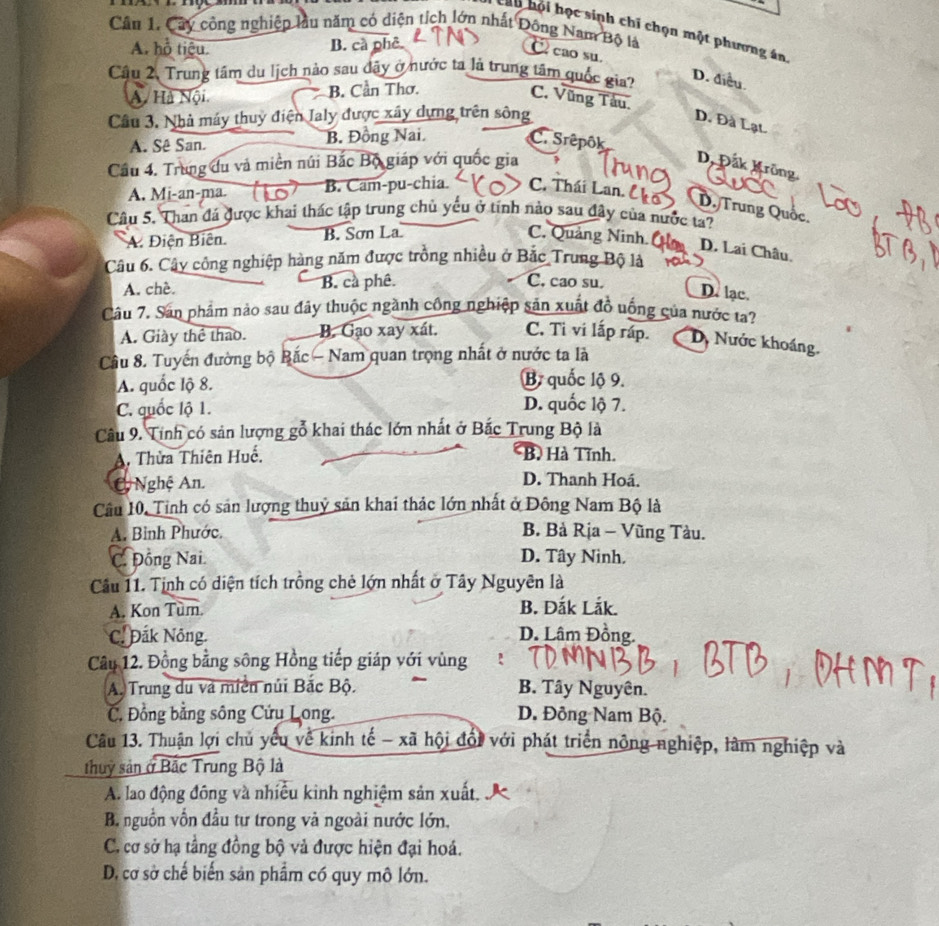 hỏi học sinh chỉ chọn một phương án.
Câu 1. Cây công nghiệp lâu năm có diện tích lớn nhất Đông Nam Bộ là
A. hồ tiêu. B. cà phê. C. cao su. D. điều.
Câu 2. Trung tâm du lịch nào sau đây ở nước ta là trung tâm quốc gia?
A. Hà Nội. B. Cần Thơ. C. Vũng Tàu. D. Đà Lạt.
Câu 3. Nhà máy thuỷ điện Ialy được xây dựng trên sông
A. Sê San. B. Đồng Nai. C. Srêpôk D. Đắk Krông.
Câu 4. Trung du và miền núi Bắc Bộ giáp với quốc gia Trung Quốc, Lào
A. Mi-an-ma. B. Cam-pu-chia. C. Thái Lan. D. Trung Quốc.
Câu 5. Than đá được khai thác tập trung chủ yếu ở tỉnh nào sau đây của nước ta?
A. Điện Biên. B. Sơn La. C. Quảng Ninh. D. Lai Châu.
Câu 6. Cây công nghiệp hàng năm được trồng nhiều ở Bắc Trung Bộ là
A. chè. B. cà phê. C. cao su. D. lạc.
Câu 7. Sản phẩm nào sau đây thuộc ngành công nghiệp sản xuất đồ uống của nước ta?
A. Giày thể thao. B. Gạo xay xát. C. Ti vi lắp ráp. D. Nước khoáng.
Câu 8. Tuyến đường bộ Bắc – Nam quan trọng nhất ở nước ta là
A. quốc lộ 8. B. quốc lộ 9.
C. quốc lộ 1. D. quốc lộ 7.
Câu 9. Tỉnh có sản lượng gỗ khai thác lớn nhất ở Bắc Trung Bộ là
A. Thừa Thiên Huế. B. Hà Tĩnh.
C. Nghệ An. D. Thanh Hoá.
Câu 10. Tỉnh có sản lượng thuỷ sản khai thác lớn nhất ở Đông Nam Bộ là
A. Bình Phước. B. Bà Rịa – Vũng Tàu.
C. Đồng Nai. D. Tây Ninh.
Câu 11. Tỉnh có diện tích trồng chè lớn nhất ở Tây Nguyên là
A. Kon Tum. B. Đắk Lắk.
C. Đắk Nông. D. Lâm Đồng.
Câu 12. Đồng bằng sông Hồng tiếp giáp với vùng : TDMNBB, BTB, DHMT,
A. Trung du và miền núi Bắc Bộ. B. Tây Nguyên.
C. Đồng bằng sông Cửu Long. D. Đông Nam Bộ.
Câu 13. Thuận lợi chủ yếu về kinh tế – xã hội đối với phát triển nông nghiệp, lâm nghiệp và
thuỷ sản ở Bắc Trung Bộ là
A. lao động đông và nhiều kinh nghiệm sản xuất.
B. nguồn vốn đầu tư trong và ngoài nước lớn.
C. cơ sở hạ tầng đồng bộ và được hiện đại hoá.
D. cơ sở chế biến sản phẩm có quy mô lớn.